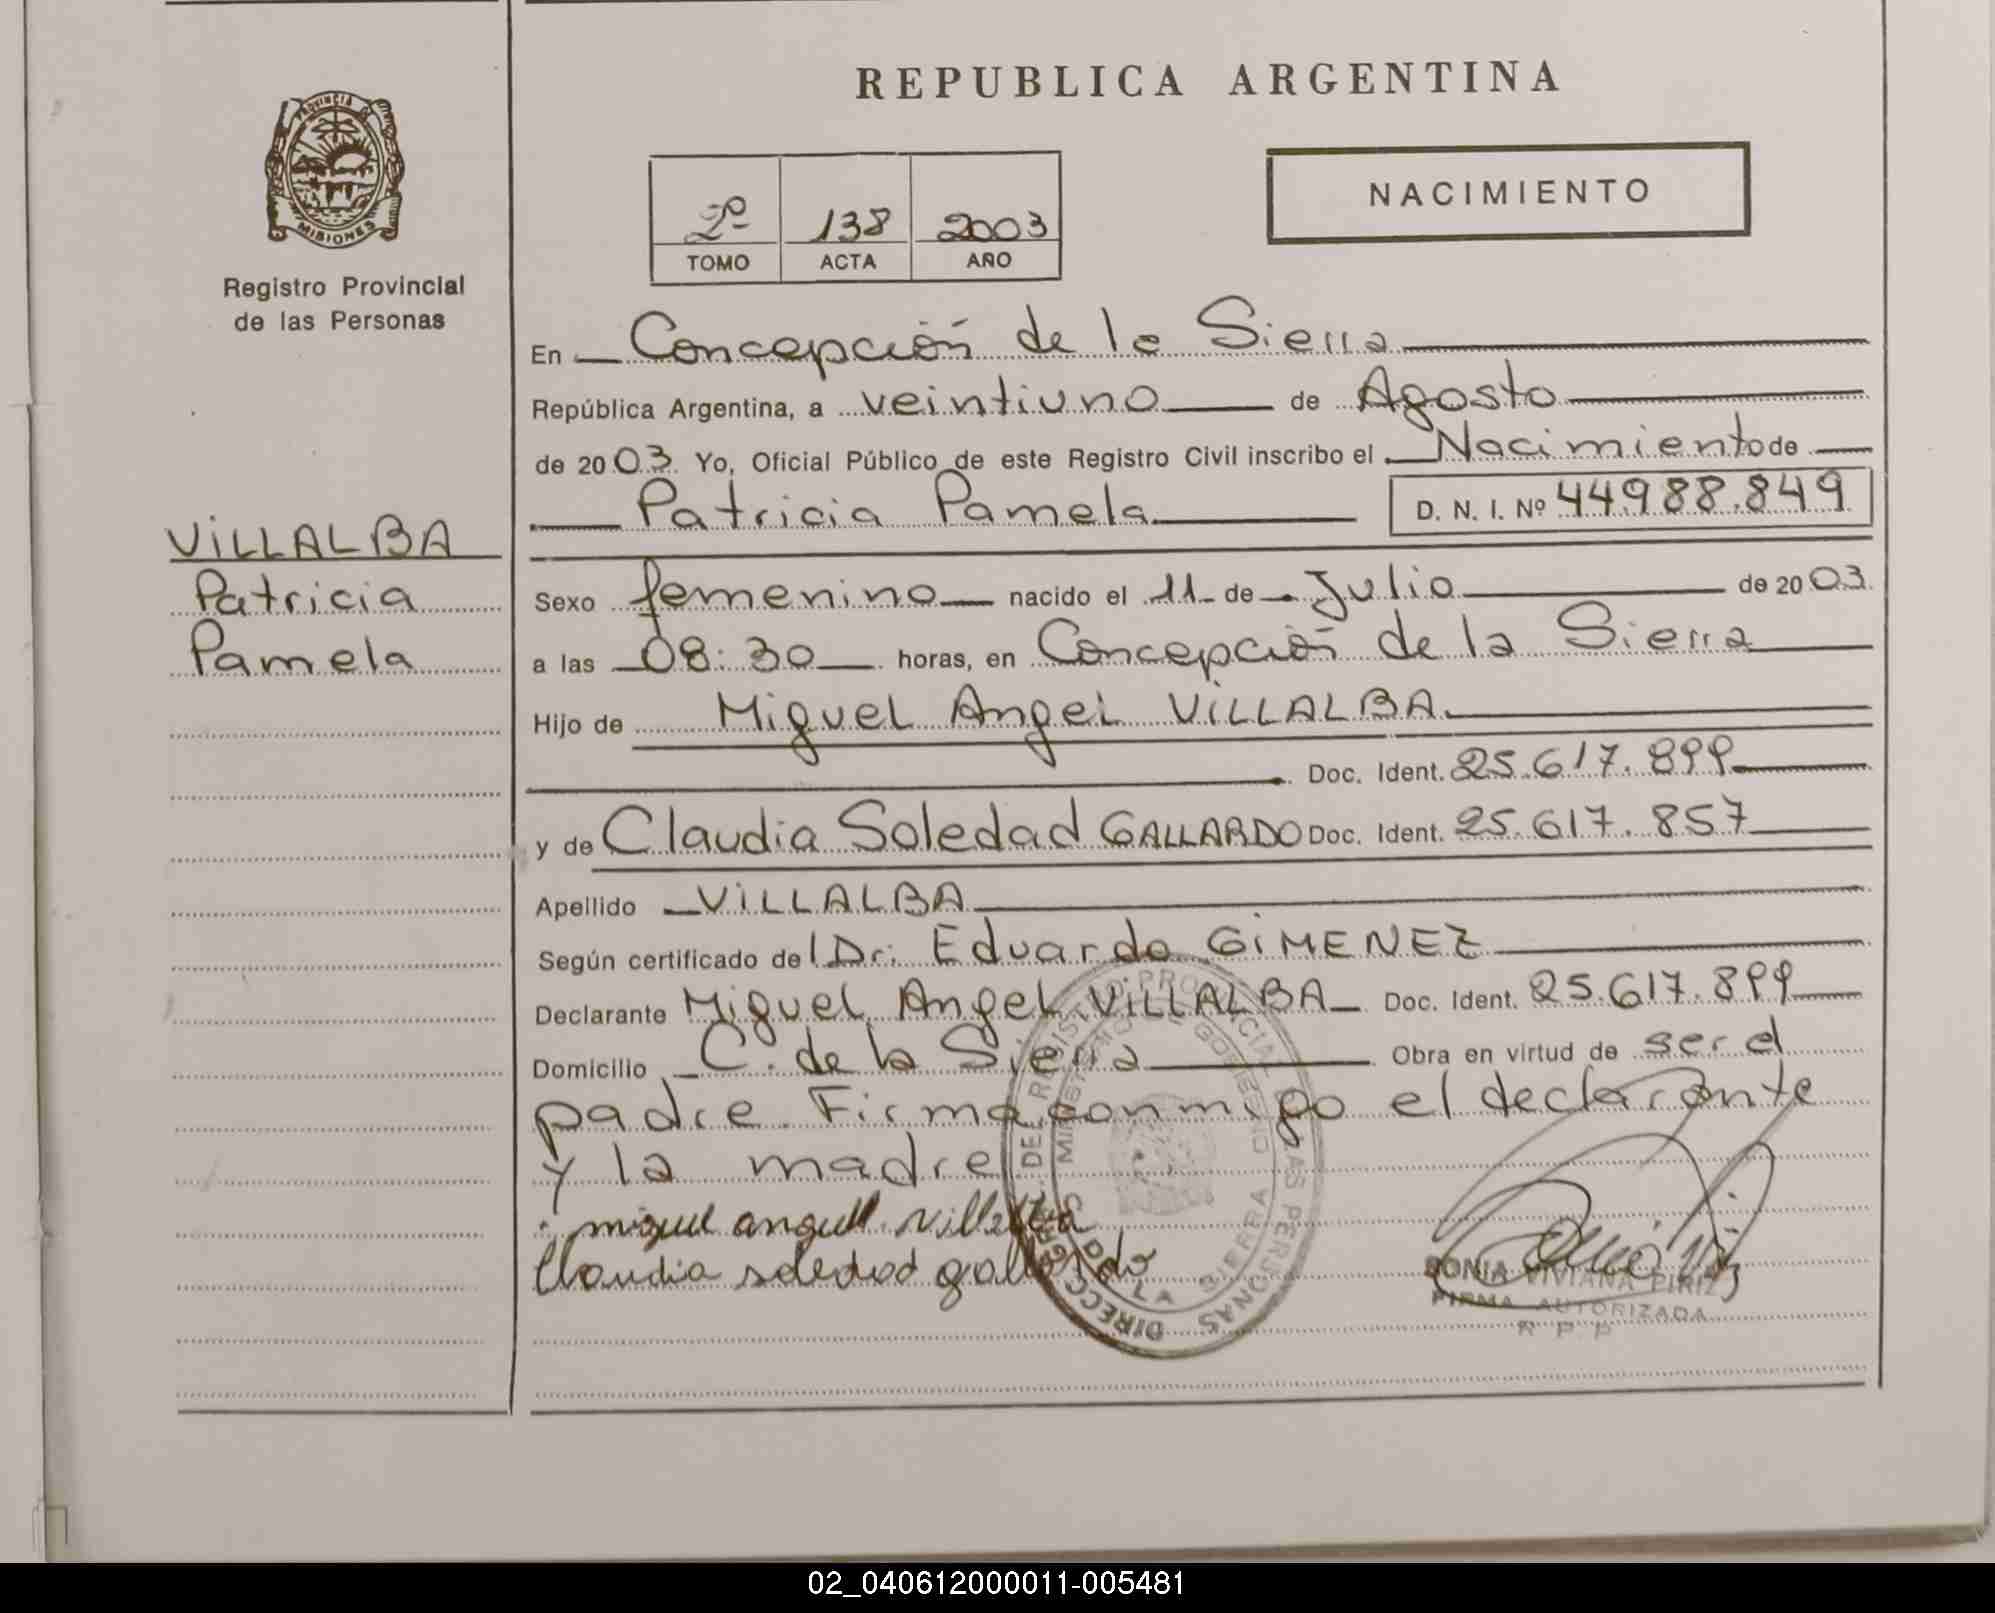 REPUBLICA ARGENTINA
PROVINCIA DE
MISIONES
Registro Provincial
de las Personas
NACIMIENTO
2º 138 2003
TOMO ACTA AÑO
En Concepción de la Sierra
República Argentina, a veintiuno de Agosto
de 2003 Yo, Oficial Público de este Registro Civil inscribo el Nacimiento de
Patricia Pamela D. N. I. Nº 44.988.849
VILLALBA
Patricia
Pamela
Sexo femenino nacido el 11 de Julio de 2003
a las 08:30 horas, en Concepción de la Sierra
Hijo de Miguel Angel VILLALBA
Doc. Ident. 25.617.899
y de Claudia Soledad GALLARDO Doc. Ident. 25.617.857
Apellido VILLALBA
Según certificado del Dr. Eduardo GIMENEZ
Declarante Miguel Angel VILLALBA Doc. Ident. 25.617.899
Domicilio C. de la Sierra Obra en virtud de ser el
padre. Firma conmigo el declarante
y la madre
miguel angel villalba
Claudia soledad gallardo
DIRECC. GRAL. DEL REGISTRO PROVINCIAL DE LAS PERSONAS
MINISTERIO DE GOBIERNO
DE LA SIERRA
SONIA VIVIANA PIRIZ
FIRMA AUTORIZADA
R P P
02_040612000011-005481